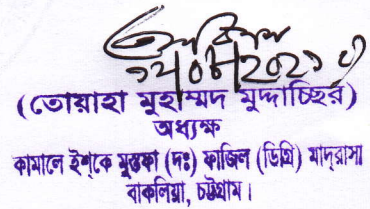 ১৭০৮২০২১
(তোয়াহা মুহাম্মদ মুদ্দাচ্ছির)
অধ্যক্ষ
কামালে ইশ্‌কে মুস্তফা (দঃ) ফাজিল (ডিগ্রি) মাদ্‌রাসা
বাকলিয়া, চট্টগ্রাম।